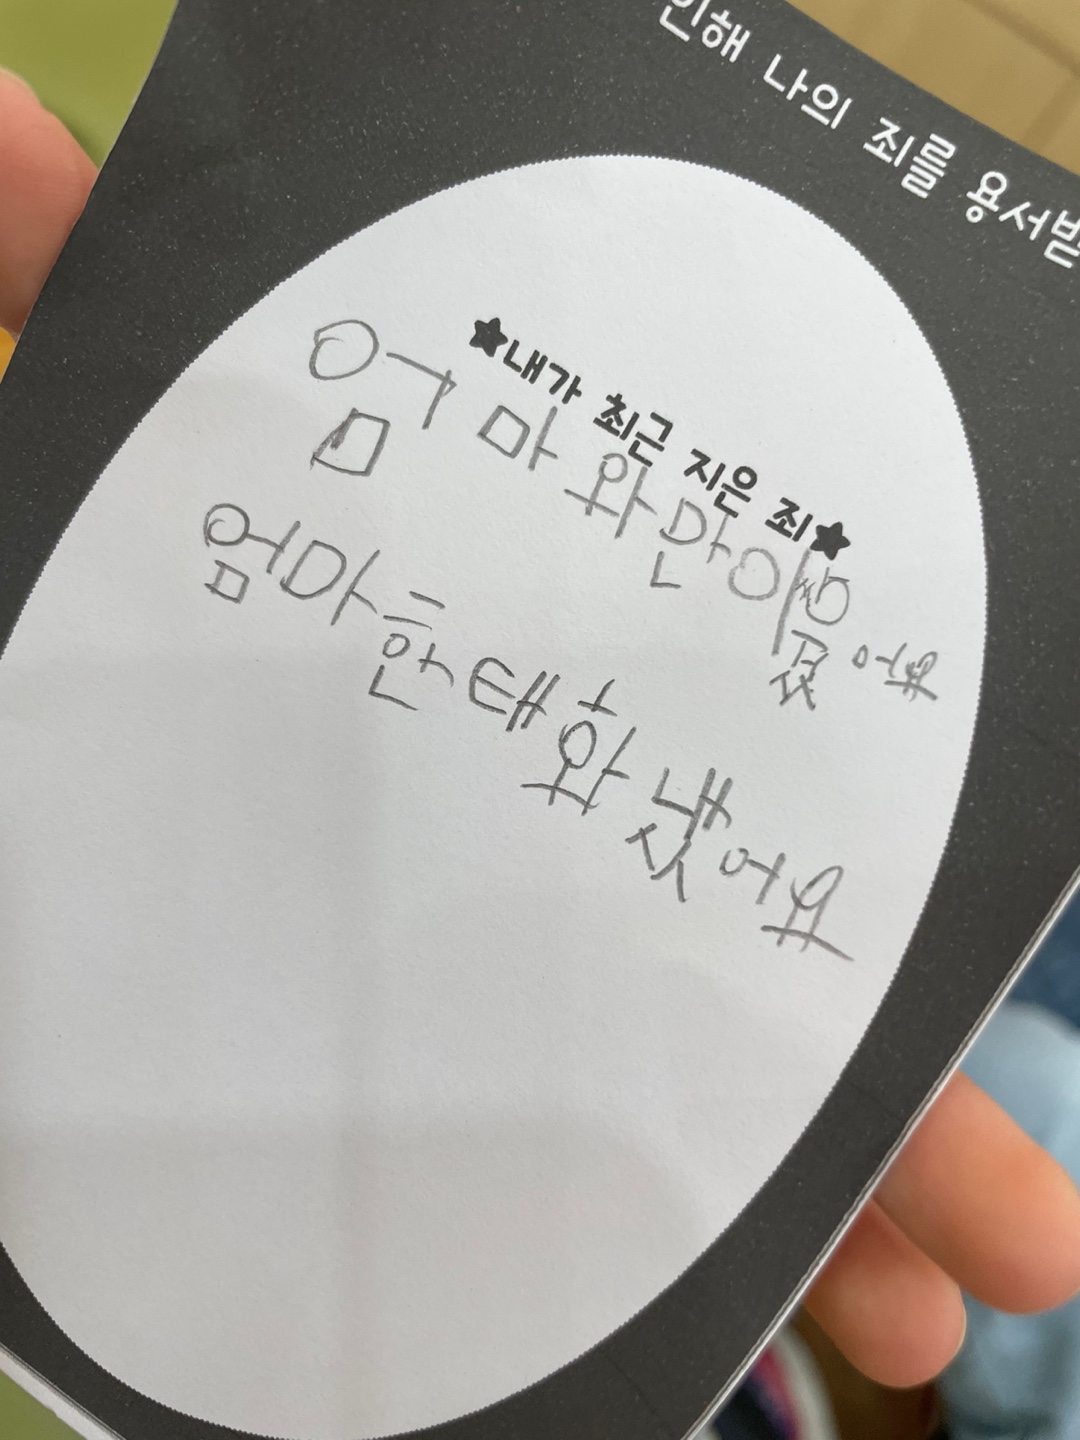 인해 나의 죄를 용서받
★내가 최근 지은 죄★
엄마와 많이
어요
엄마한태 화냈어요